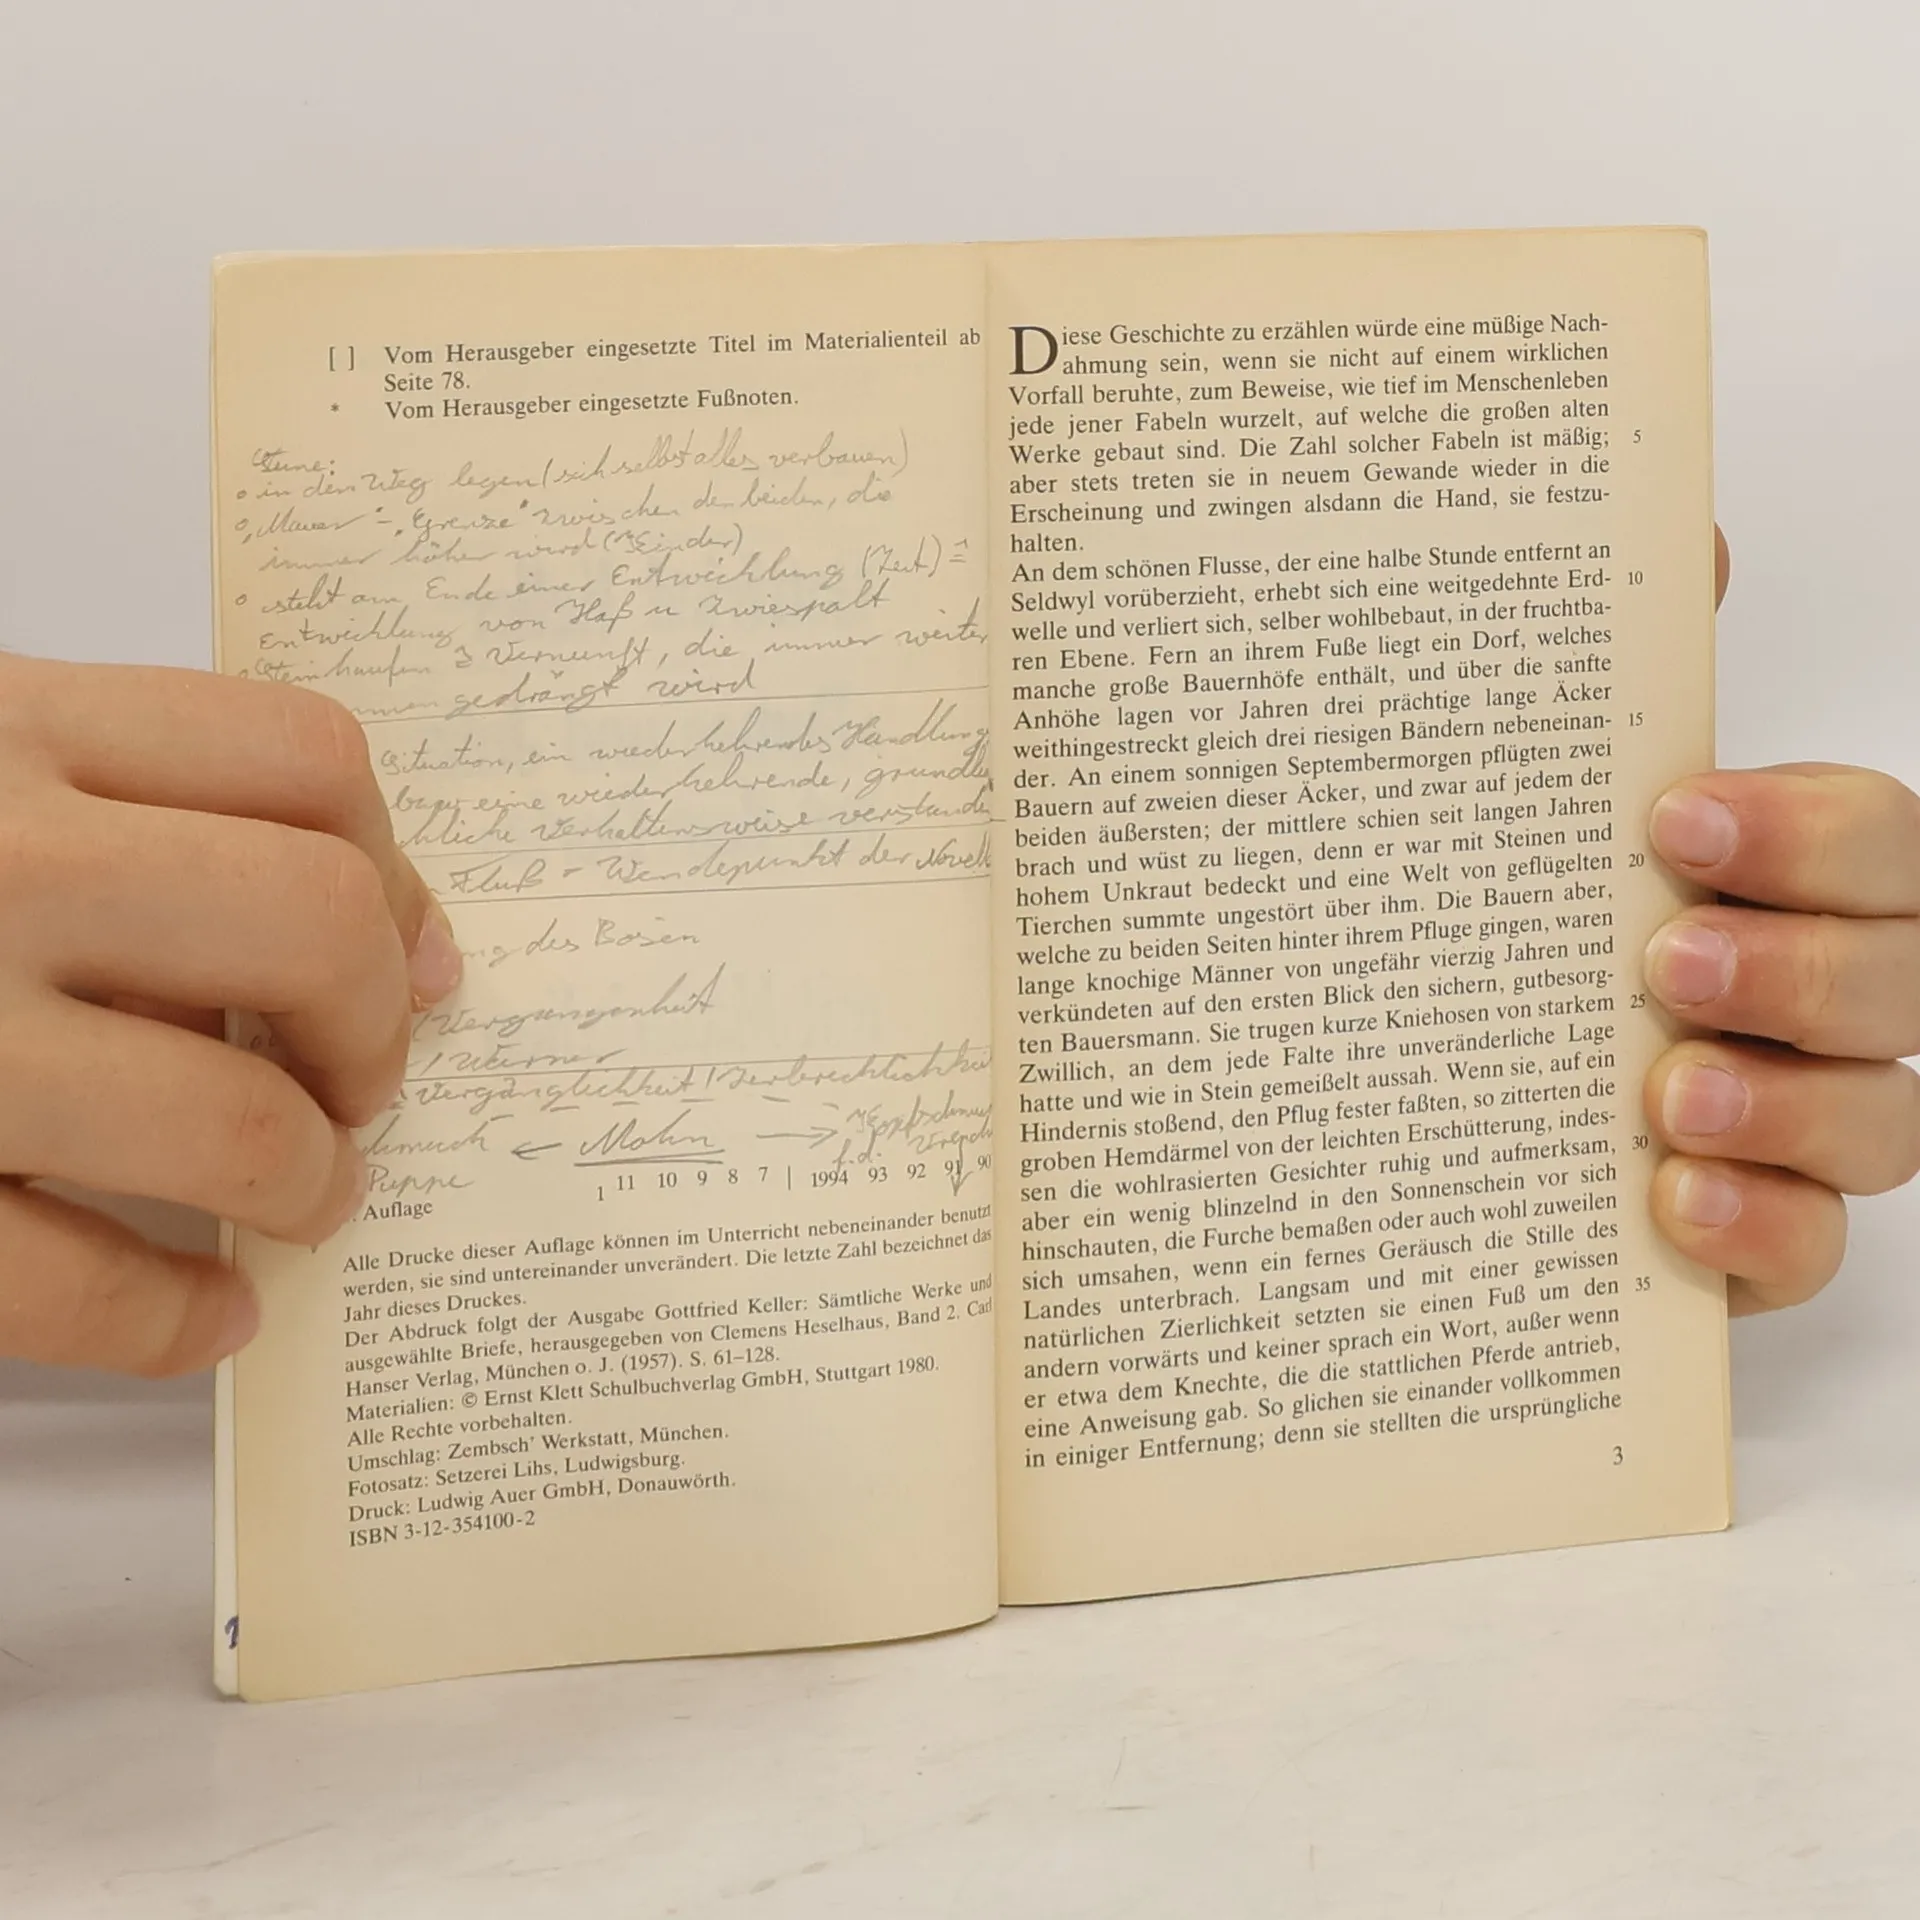 [ ] Vom Herausgeber eingesetzte Titel im Materialienteil ab
Seite 78.
* Vom Herausgeber eingesetzte Fußnoten.
in den Weg legen (sich selbst alles verbauen)
"Mauer" - "Grenze" zwischen den beiden, die
immer höher wird
steht am Ende einer Entwicklung (Zeit) ≙
Entwicklung von Haß u Zwiespalt
Steinhaufen ≙ Vernunft, die immer weiter
gedrängt wird
Situation, ein wiederkehrendes Handlung
bzw eine wiederkehrende,
Verhaltensweise
Fluß - Wendepunkt der Novell
des Bösen
Vergangenheit
/ Würmer
Vergänglichkeit / Zerbrechlichkei
← Mohn →
f. d.
Puppe
1 11 10 9 8 7 | 1994 93 92 91 90
. Auflage
Alle Drucke dieser Auflage können im Unterricht nebeneinander benutzt
werden, sie sind untereinander unverändert. Die letzte Zahl bezeichnet das
Jahr dieses Druckes.
Der Abdruck folgt der Ausgabe Gottfried Keller: Sämtliche Werke und
ausgewählte Briefe, herausgegeben von Clemens Heselhaus, Band 2. Carl
Hanser Verlag, München o. J. (1957). S. 61–128.
Materialien: © Ernst Klett Schulbuchverlag GmbH, Stuttgart 1980.
Alle Rechte vorbehalten.
Umschlag: Zembsch' Werkstatt, München.
Fotosatz: Setzerei Lihs, Ludwigsburg.
Druck: Ludwig Auer GmbH, Donauwörth.
ISBN 3-12-354100-2
Diese Geschichte zu erzählen würde eine müßige Nach-
ahmung sein, wenn sie nicht auf einem wirklichen
Vorfall beruhte, zum Beweise, wie tief im Menschenleben
jede jener Fabeln wurzelt, auf welche die großen alten
Werke gebaut sind. Die Zahl solcher Fabeln ist mäßig; 5
aber stets treten sie in neuem Gewande wieder in die
Erscheinung und zwingen alsdann die Hand, sie festzu-
halten.
An dem schönen Flusse, der eine halbe Stunde entfernt an
Seldwyl vorüberzieht, erhebt sich eine weitgedehnte Erd- 10
welle und verliert sich, selber wohlbebaut, in der fruchtba-
ren Ebene. Fern an ihrem Fuße liegt ein Dorf, welches
manche große Bauernhöfe enthält, und über die sanfte
Anhöhe lagen vor Jahren drei prächtige lange Äcker
weithingestreckt gleich drei riesigen Bändern nebeneinan- 15
der. An einem sonnigen Septembermorgen pflügten zwei
Bauern auf zweien dieser Äcker, und zwar auf jedem der
beiden äußersten; der mittlere schien seit langen Jahren
brach und wüst zu liegen, denn er war mit Steinen und
hohem Unkraut bedeckt und eine Welt von geflügelten 20
Tierchen summte ungestört über ihm. Die Bauern aber,
welche zu beiden Seiten hinter ihrem Pfluge gingen, waren
lange knochige Männer von ungefähr vierzig Jahren und
verkündeten auf den ersten Blick den sichern, gutbesorg-
ten Bauersmann. Sie trugen kurze Kniehosen von starkem 25
Zwillich, an dem jede Falte ihre unveränderliche Lage
hatte und wie in Stein gemeißelt aussah. Wenn sie, auf ein
Hindernis stoßend, den Pflug fester faßten, so zitterten die
groben Hemdärmel von der leichten Erschütterung, indes-
sen die wohlrasierten Gesichter ruhig und aufmerksam, 30
aber ein wenig blinzelnd in den Sonnenschein vor sich
hinschauten, die Furche bemaßen oder auch wohl zuweilen
sich umsahen, wenn ein fernes Geräusch die Stille des
Landes unterbrach. Langsam und mit einer gewissen
natürlichen Zierlichkeit setzten sie einen Fuß um den 35
andern vorwärts und keiner sprach ein Wort, außer wenn
er etwa dem Knechte, die die stattlichen Pferde antrieb,
eine Anweisung gab. So glichen sie einander vollkommen
in einiger Entfernung; denn sie stellten die ursprüngliche
3